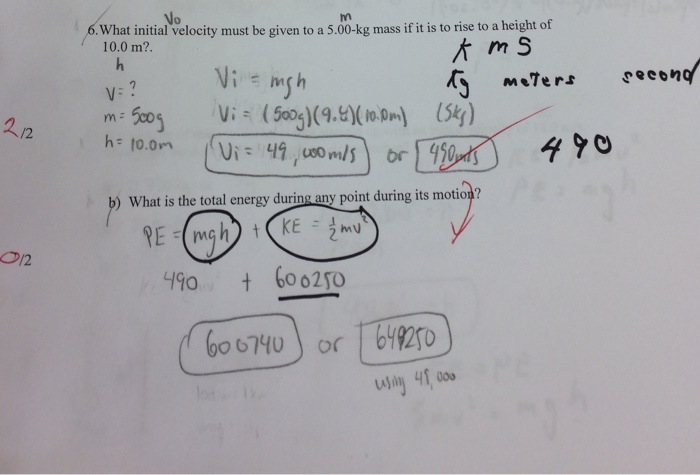 Vo m
6. What initial velocity must be given to a 5.00-kg mass if it is to rise to a height of
10.0 m?.
h
K m S
Kg meters second
V= ?
Vi = mgh
m= 500g
Vi = (500g)(9.8)(10.0m) (5kg)
2/2
h= 10.0m
Vi = 49,000 m/s or 490 m/s 490
b) What is the total energy during any point during its motion?
PE = mgh + KE = ½mv²
0/2
490 + 600250
600740 or 649250
using 49,000